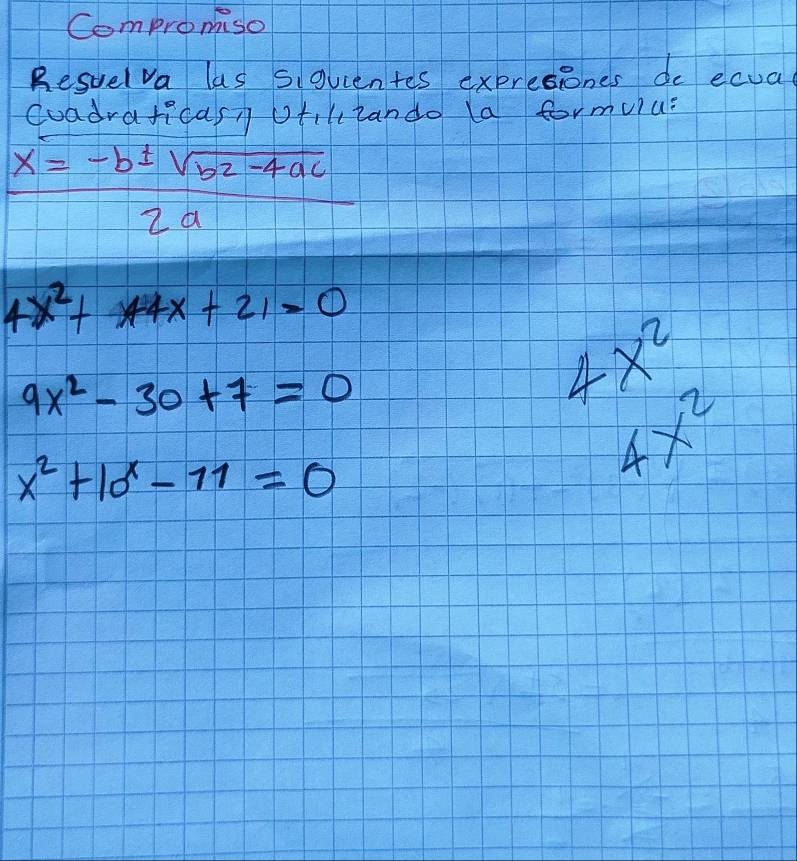 Compromiso
Resuelva las siguientes expresiones de ecuac
Cuadraticas, Utilizando la formula:
x = -b ± √b2 - 4ac
2a
4x² + 44x + 21 = 0
9x² - 30 + 7 = 0
x² + 10x - 11 = 0
4x²
4x²